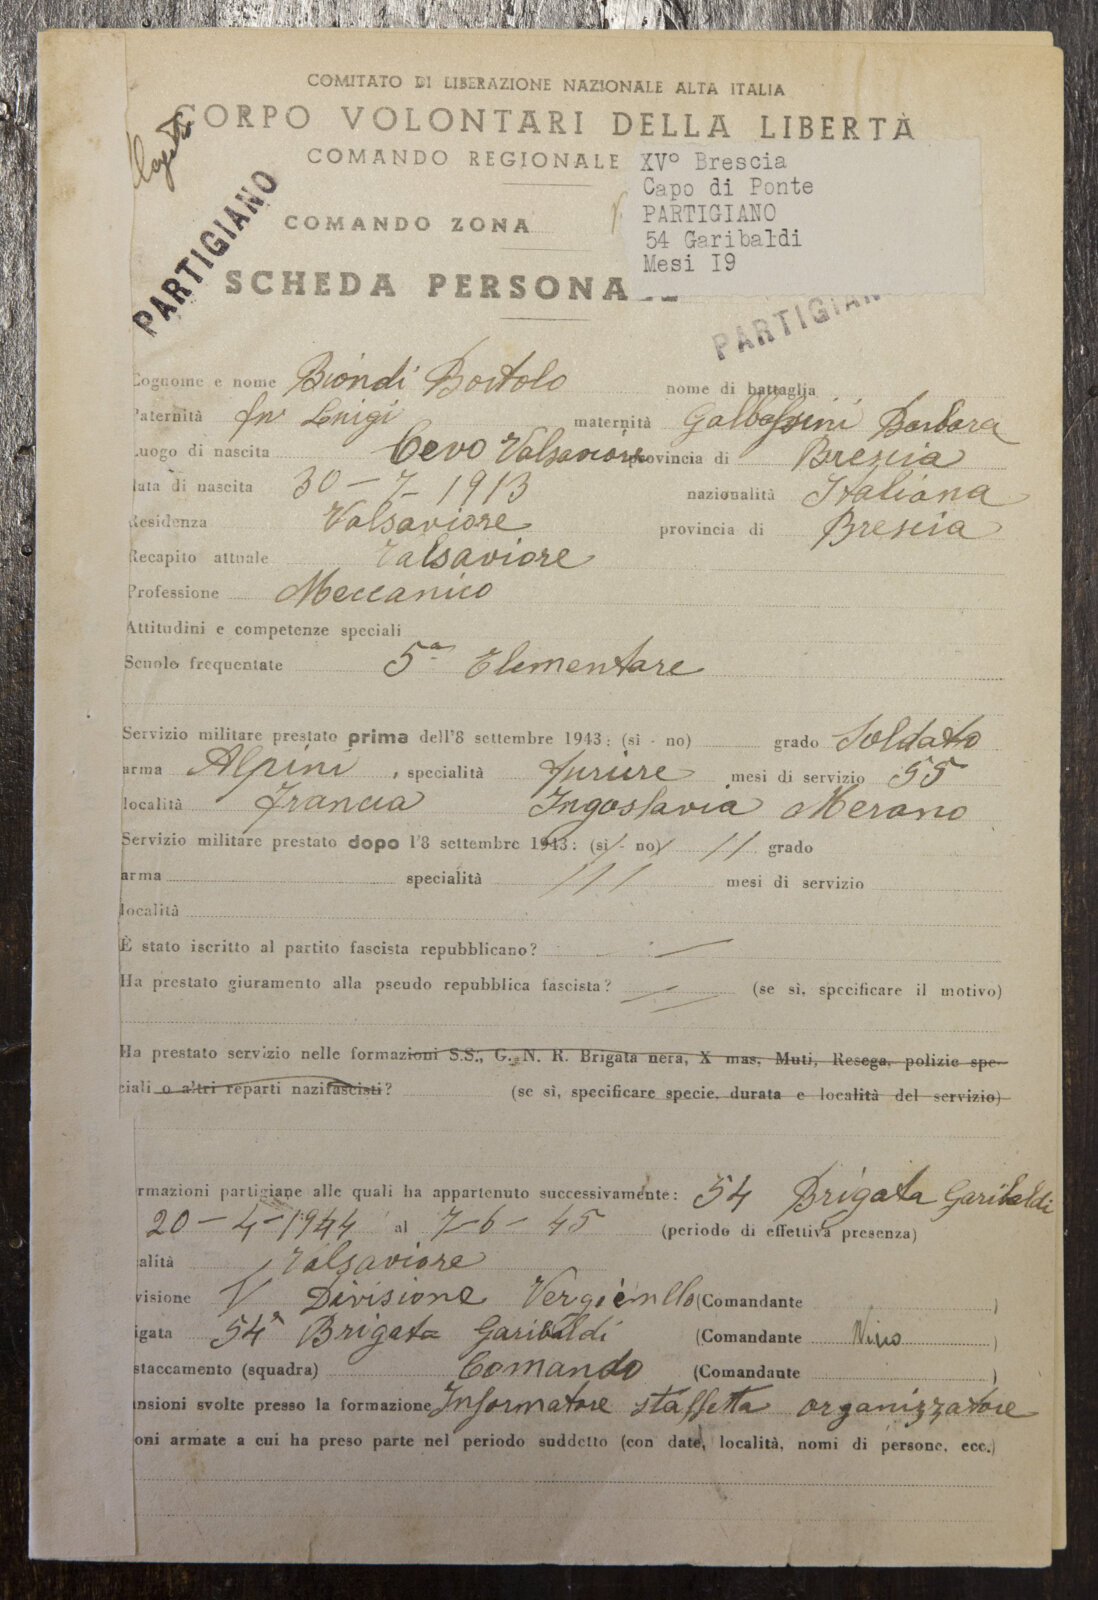 COMITATO DI LIBERAZIONE NAZIONALE ALTA ITALIA
CORPO VOLONTARI DELLA LIBERTÀ
COMANDO REGIONALE
XV° Brescia
Capo di Ponte
PARTIGIANO
54 Garibaldi
Mesi I9
PARTIGIANO
COMANDO ZONA
SCHEDA PERSONA
PARTIGIAN
Cognome e nome Biondi Bortolo nome di battaglia
Paternità fu Luigi maternità Galbassini Barbara
Luogo di nascita Cevo Valsaviore provincia di Brescia
data di nascita 30-7-1913 nazionalità Italiana
Residenza Valsaviore provincia di Brescia
Recapito attuale Valsaviore
Professione Meccanico
Attitudini e competenze speciali
Scuole frequentate 5ª Elementare
Servizio militare prestato prima dell'8 settembre 1943: (sì - no) grado Soldato
arma Alpini, specialità furiere mesi di servizio 55
località Francia Iugoslavia Merano
Servizio militare prestato dopo l'8 settembre 1943: (sì - no) // grado
arma specialità /// mesi di servizio
località
È stato iscritto al partito fascista repubblicano? —
Ha prestato giuramento alla pseudo repubblica fascista? — (se sì, specificare il motivo)
Ha prestato servizio nelle formazioni S.S., G. N. R. Brigata nera, X mas, Muti, Resega, polizie spe-
ciali o altri reparti nazifascisti? (se sì, specificare specie, durata e località del servizio)
rmazioni partigiane alle quali ha appartenuto successivamente: 54 Brigata Garibaldi
20-4-1944 al 7-6-45 (periodo di effettiva presenza)
alità Valsaviore
visione Divisione (Comandante )
igata 54ª Brigata Garibaldi (Comandante Nino )
staccamento (squadra) Comando (Comandante )
nsioni svolte presso la formazione Informatore staffetta organizzatore
oni armate a cui ha preso parte nel periodo suddetto (con date, località, nomi di persone, ecc.)